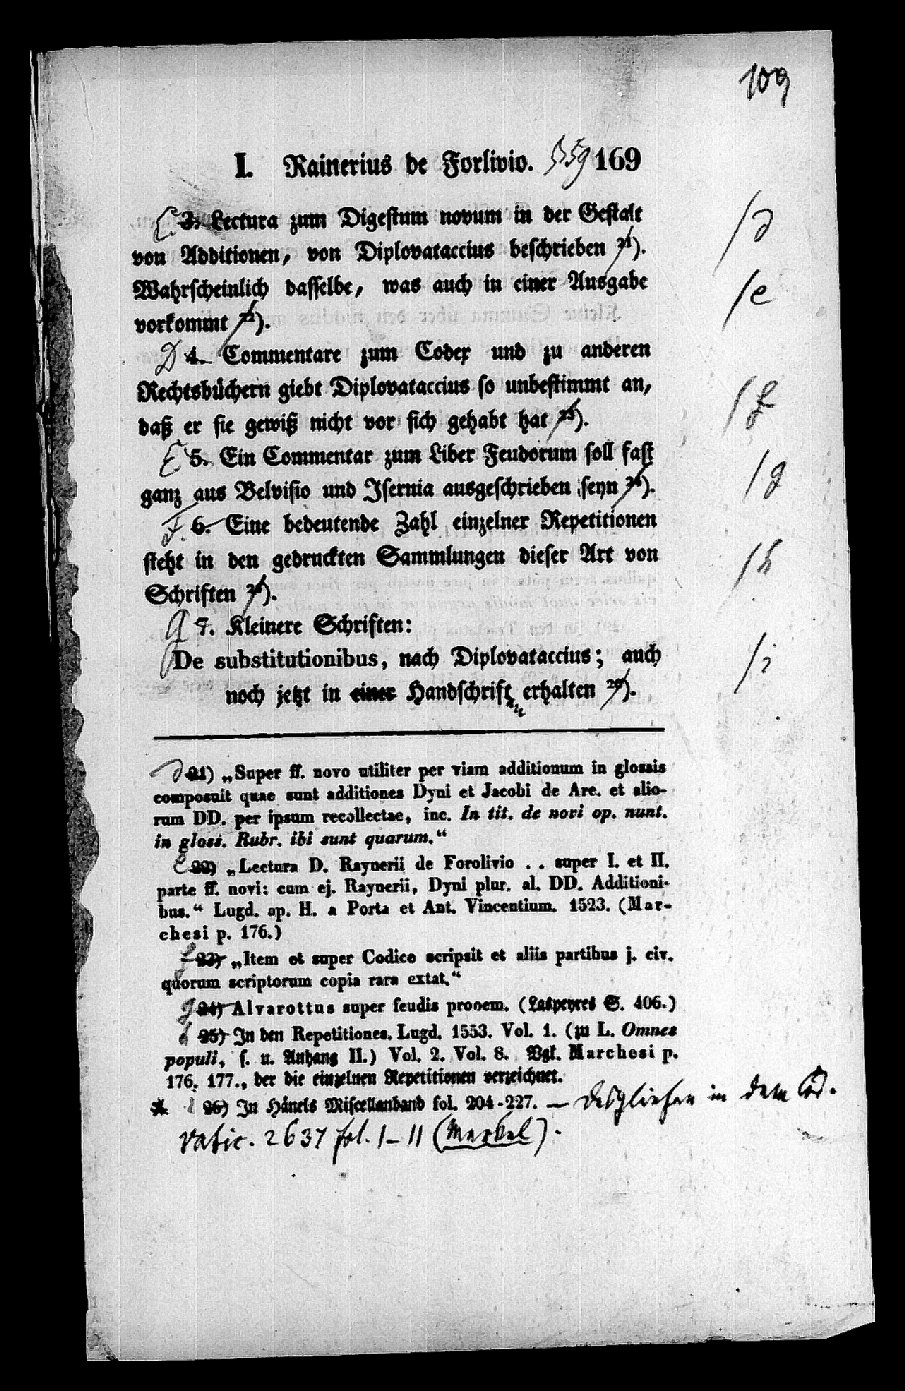 109
I. Rainerius de Forlivio. 559 169
C 3. Lectura zum Digestum novum in der Gestalt
von Additionen, von Diplovataccius beschrieben 21). /d
Wahrscheinlich dasselbe, was auch in einer Ausgabe /e
vorkommt 22).
D 4. Commentare zum Codex und zu anderen
Rechtsbüchern giebt Diplovataccius so unbestimmt an,
daß er sie gewiß nicht vor sich gehabt hat 23). /f
E 5. Ein Commentar zum Liber Feudorum soll fast
ganz aus Belvisio und Isernia ausgeschrieben seyn 24). /g
F. 6. Eine bedeutende Zahl einzelner Repetitionen
steht in den gedruckten Sammlungen dieser Art von
Schriften 25). /h
G 7. Kleinere Schriften:
De substitutionibus, nach Diplovataccius; auch
noch jetzt in einer Handschrift erhalten 26). /i
en
d 21) „Super ff. novo utiliter per viam additionum in glossis
composuit quae sunt additiones Dyni et Jacobi de Are. et alio-
rum DD. per ipsum recollectae, inc. In tit. de novi op. nunt.
in gloss. Rubr. ibi sunt quarum.“
e 22) „Lectura D. Raynerii de Forolivio . . super I. et II.
parte ff. novi: cum ej. Raynerii, Dyni plur. al. DD. Additioni-
bus.“ Lugd. ap. H. a Porta et Ant. Vincentium. 1523. (Mar-
chesi p. 176.)
f 23) „Item et super Codice scripsit et aliis partibus j. civ.
quorum scriptorum copia rara extat.“
g 24) Alvarottus super feudis prooem. (Laspeyres S. 406.)
h 25) In den Repetitiones. Lugd. 1553. Vol. 1. (zu L. Omnes
populi, s. u. Anhang II.) Vol. 2. Vol. 8. Vgl. Marchesi p.
176. 177., der die einzelnen Repetitionen verzeichnet.
i 26) In Hänels Miscellanband fol. 204-227. — Desgleichen in dem Cod.
Vatic. 2637 fol. 1–11 (Merkel).